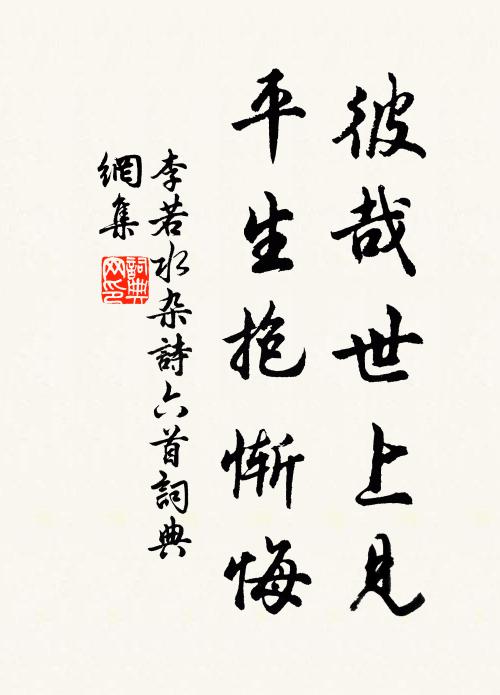 彼哉世上見
平生抱慚悔
李若水杂詩六首詞典
網集
詞典
网印